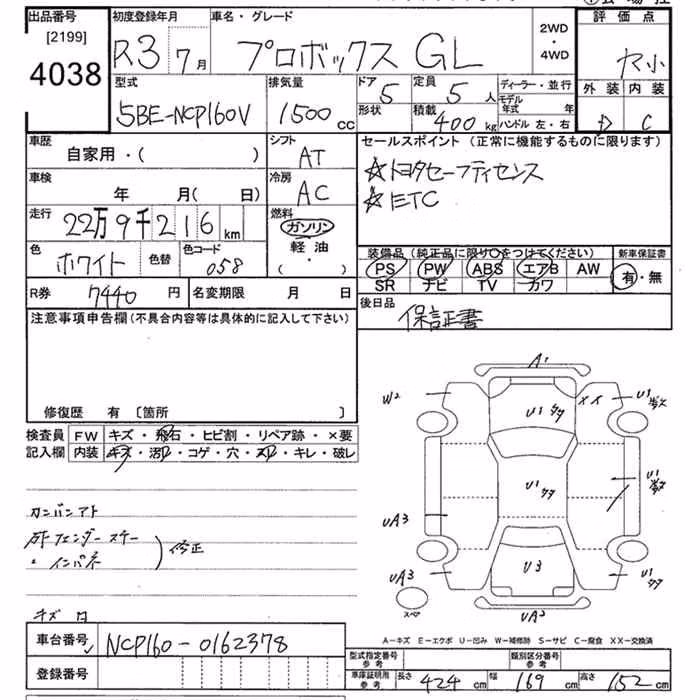 出品番号 初度登録年月 車名・グレード 2WD・4WD 評価点
[2199]
4038
R3 7月 プロボックス GL ヤ小
型式 排気量 ドア 定員 ディーラー・並行 外装 内装
5BE-NCP160V 1500 cc 5 5人 モデル年式 年 D C
形状 積載 400 kg ハンドル 左・右
車歴 シフト セールスポイント (正常に機能するものに限ります)
自家用・( ) AT ☆トヨタセーフティセンス
車検 冷房 ☆ETC
年 月(日) AC
走行 燃料
22万9千216km ガソリン
軽油
( ・ )
色 色替 色コード 装備品 (純正品に限り○をつけてください) 新車保証書
ホワイト 058 PS PW ABS エアB AW 有・無
SR ナビ TV カワ
R券 7440円 名変期限 月 日 後日品
保証書
注意事項申告欄(不具合内容等は具体的に記入して下さい)
修復歴 有 〔箇所 〕
検査員 FW キズ・飛石・ヒビ割・リペア跡・×要
記入欄 内装 キズ・汚れ・コゲ・穴・スレ・キレ・破レ
A1
W2 U1 X X U1
U1
U1 U1
カンバンアト UA3
修正
インパネ
UA3 U3 U1
スペア UA3
キズ
A-キズ E-エクボ U-凹み W-補修跡 S-サビ C-腐食 XX-交換済
車台番号 NCP160-0162378
登録番号
型式指定番号 参考 類別区分番号 参考
車庫証明用 参考 長さ 424cm 幅 169cm 高さ 152cm